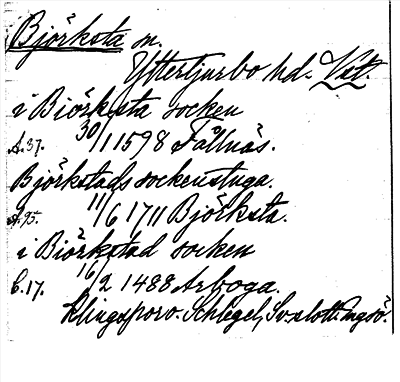 Björksta sn.
Yttertjurbo hd. Vst.
i Biörksta socken
A.37. 30/1 1598 Fållnäs.
Björkstads sockenstuga.
A.95. 11/6 1711 Björksta.
i Biörkstad socken
C.17. 16/2 1488 Arboga.
Klingsporo. Schlegel, Sv. slott. Ängsö.